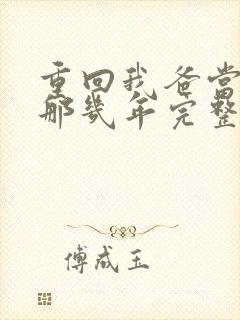 重回我爸当
那几年完整
傅成玉